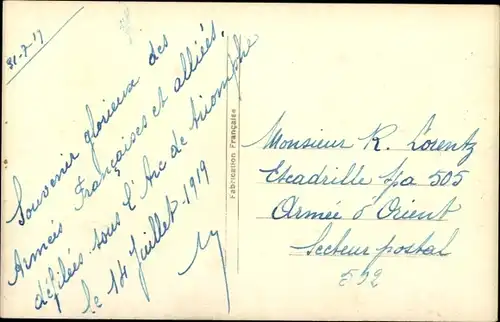 31-7-19
Souvenir glorieux des
Armées Françaises et alliées.
défilées sous l'Arc de triomphe
le 14 Juillet 1919
Fabrication Française
Monsieur R. Lorentz
Escadrille Spa 505
Armée d'Orient
Secteur postal
592